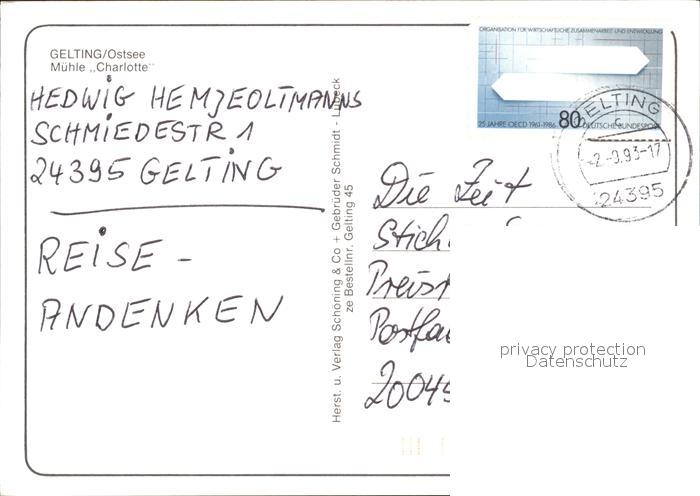 GELTING/Ostsee
Mühle „Charlotte"
HEDWIG HEMJEOLTMANNS
SCHMIEDESTR 1
24395 GELTING
REISE -
ANDENKEN
Herst. u. Verlag Schöning & Co + Gebrüder Schmidt - Lübeck
ze Bestellnr. Gelting 45
ORGANISATION FÜR WIRTSCHAFTLICHE ZUSAMMENARBEIT UND ENTWICKLUNG
25 JAHRE OECD 1961-1986
80
DEUTSCHE BUNDESPOST
GELTING
c
-2.-9.93-17
24395
Die Zeit
Stich
Preis
Postfa
20045
privacy protection
Datenschutz